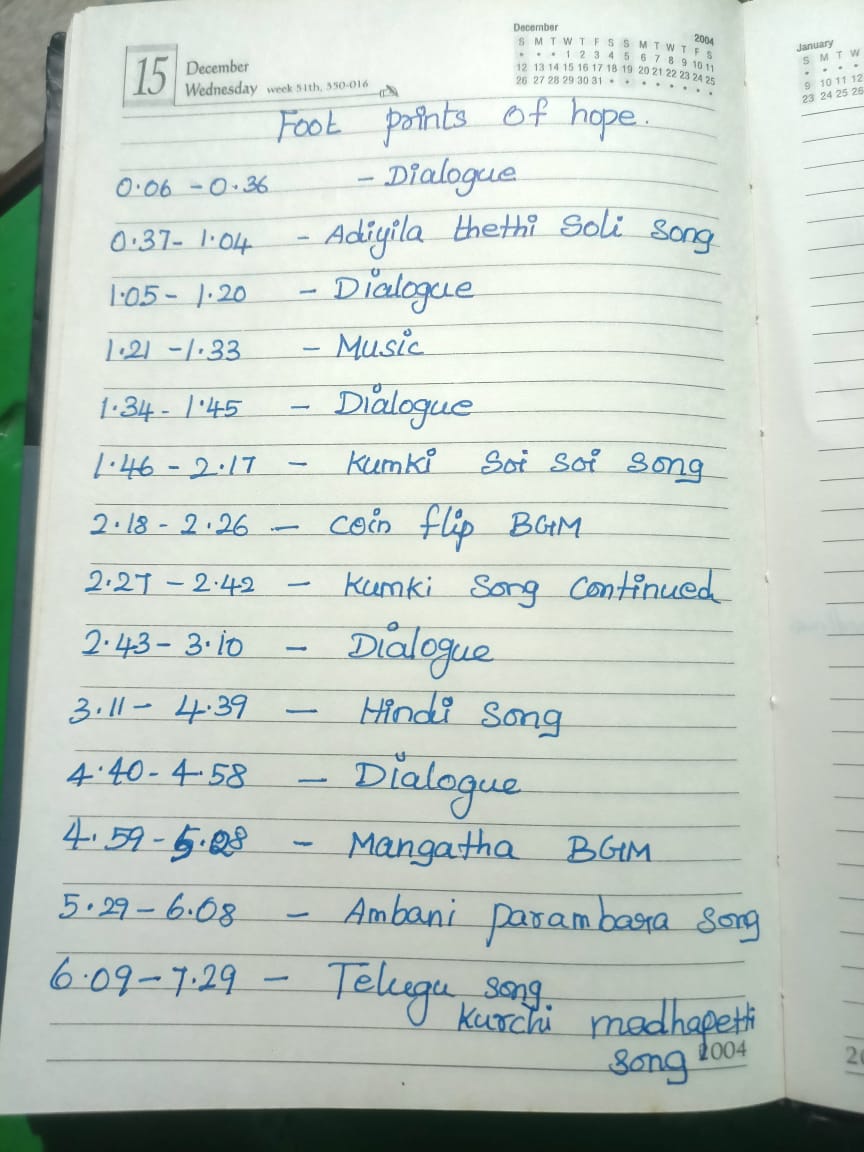 December 2004
S M T W T F S S M T W T F S
• • • 1 2 3 4 5 6 7 8 9 10 11
12 13 14 15 16 17 18 19 20 21 22 23 24 25
26 27 28 29 30 31 • • • • • • • •
January
S M T W
• • • •
9 10 11 12
23 24 25 26
15 December
Wednesday week 51th, 350-016
Foot points of hope.
0.06 - 0.36 - Dialogue
0.37- 1.04 - Adiyila thethi Soli Song
1.05 - 1.20 - Dialogue
1.21 - 1.33 - Music
1.34 - 1.45 - Dialogue
1.46 - 2.17 - Kumki Soi Soi Song
2.18 - 2.26 - Coin flip BGM
2.27 - 2.42 - Kumki Song Continued
2.43 - 3.10 - Dialogue
3.11 - 4.39 - Hindi Song
4.40 - 4.58 - Dialogue
4.59 - 5.28 - Mangatha BGM
5.29 - 6.08 - Ambani parambara Song
6.09 - 7.29 - Telugu song
Kurchi madhapetti
Song 2004